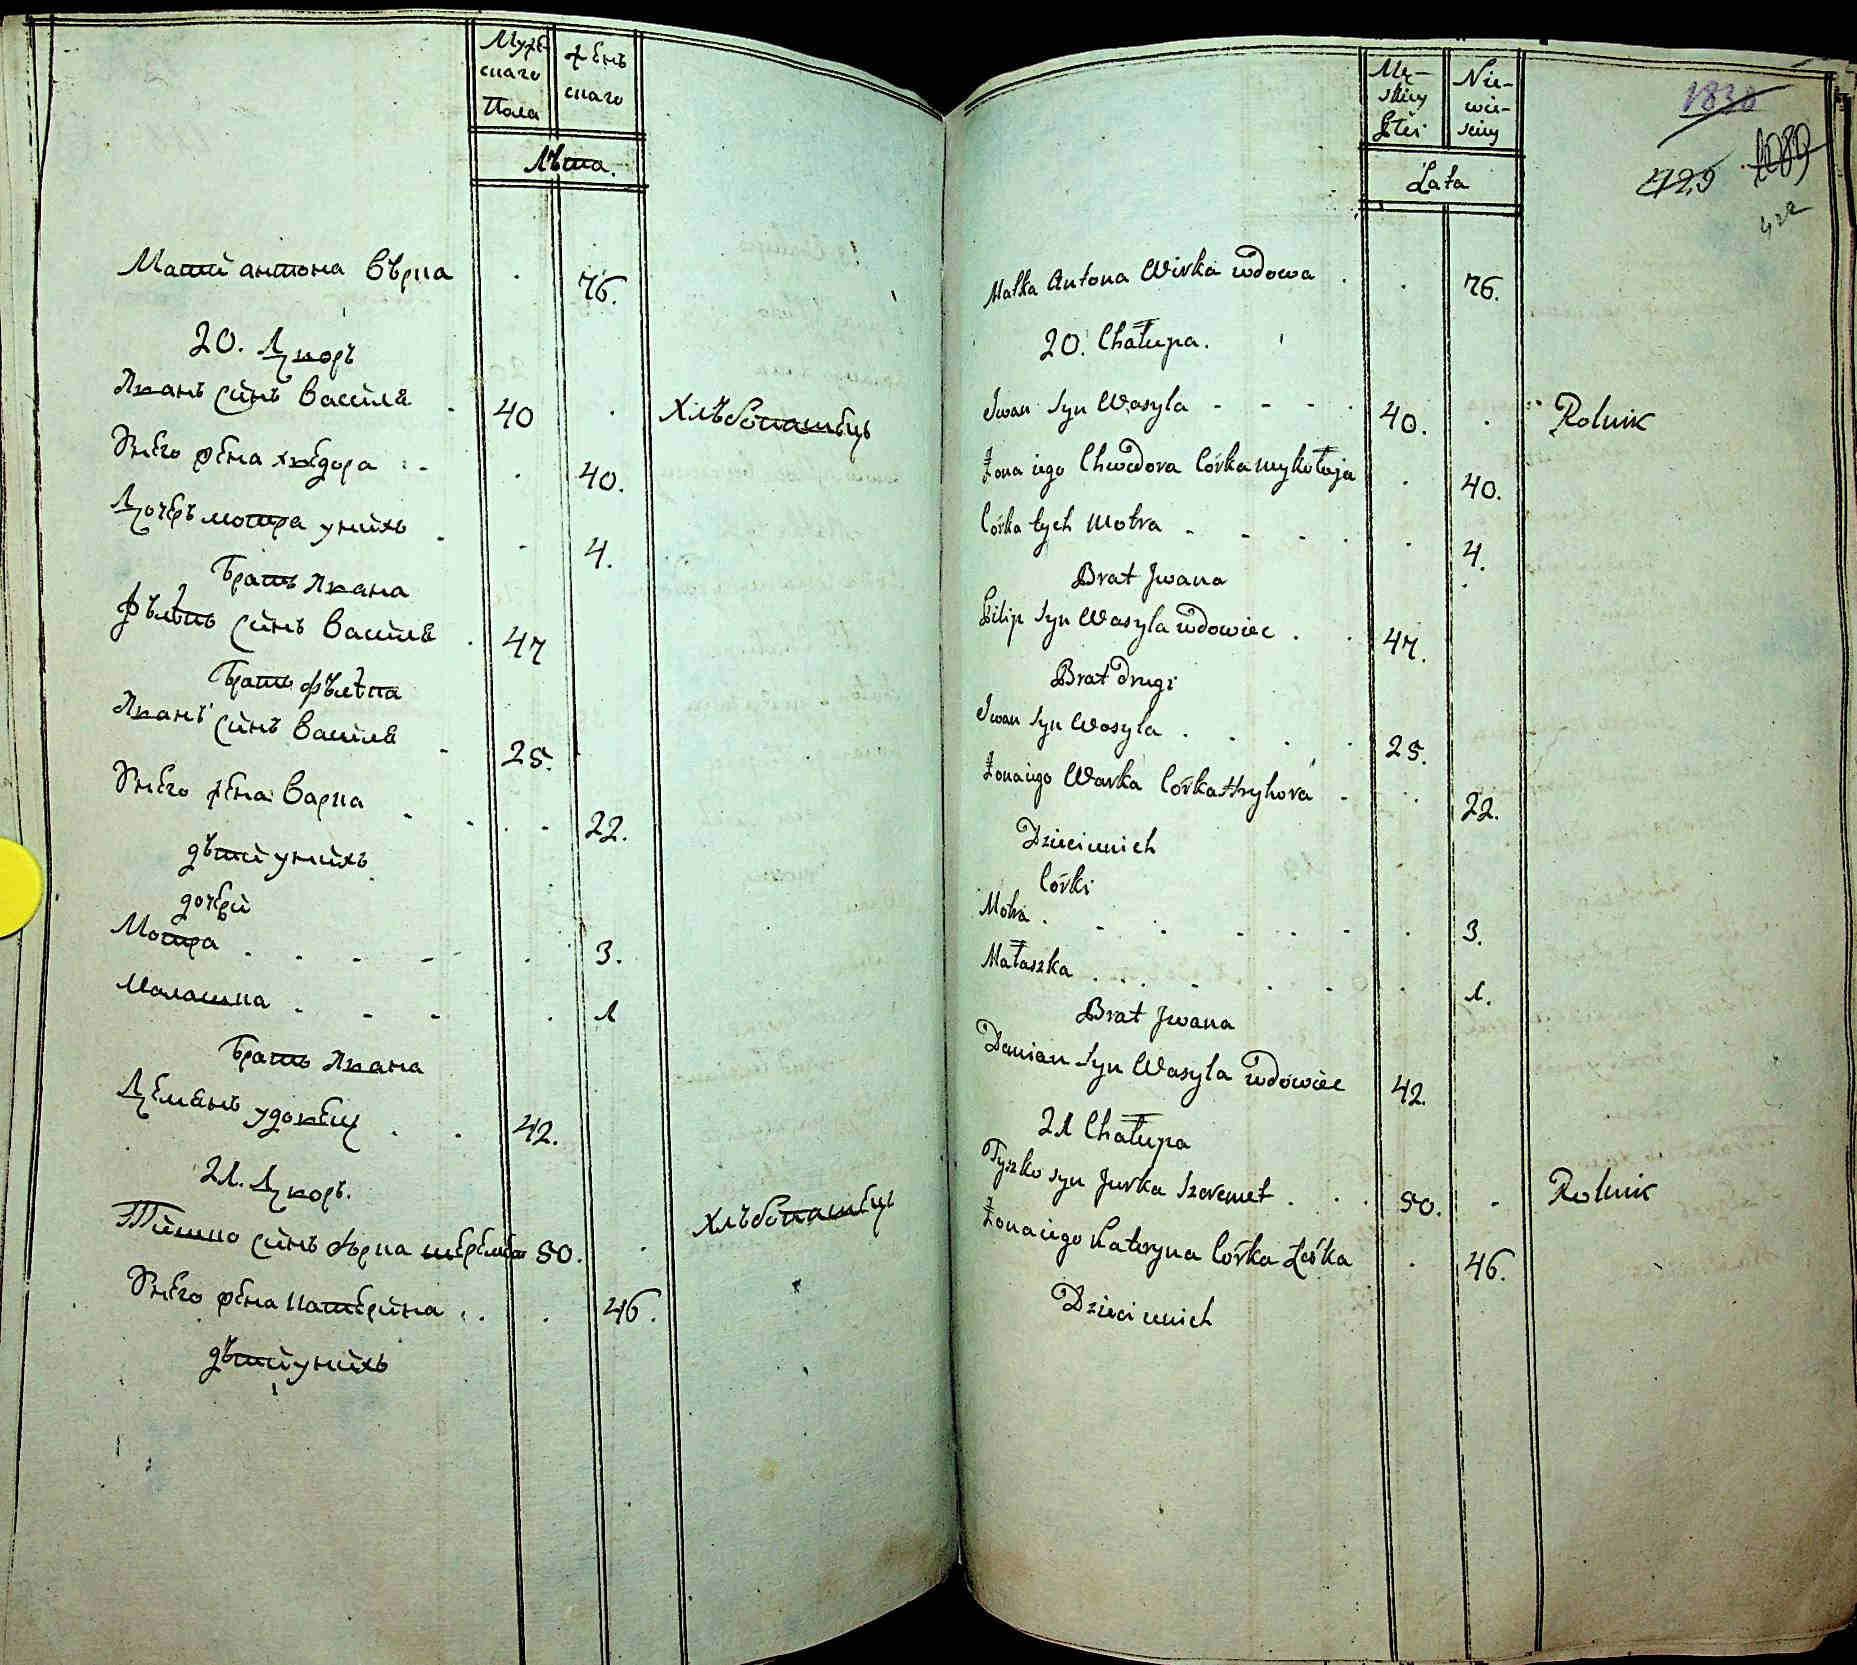 Мужє
скаго
Пола
женъ
скаго
Лѣта.
Мати антона вѣрка . 76.
20. Дворъ
Иванъ синъ василя . 40 . Хлѣбопашець
Унего жена хведора . 40.
Дочеръ мотра унихъ . 4.
Братъ Ивана
Филѣпъ синъ василя . 47
Братъ Филѣпа
Иванъ синъ василя 25.
Унего жена варка . . . . 22.
дѣти унихъ
дочери
Мотра . . . . . 3.
Малашка . . . . 1
Братъ Ивана
Демянъ удовец . . 42.
21. Дворъ.
Тишко синъ юрка шеремет 50. . хлѣбопашець
Унего жена катерина . . . 46.
дѣти унихъ
Mę-
skiey
Płci
Nie-
wie-
sciey
Lata
1838
729
1089
422
Matka Antona Wirka wdowa . . 76.
20. Chałupa.
Iwan Syn Wasyla - - - . 40. . Rolnik
Żona iego Chwedora Córka mykołaja . 40.
Córka tych Motra - - - . . 4.
Brat Jwana
Filip Syn Wasyla wdowiec . . 47.
Brat drugi
Iwan Syn Wasyla . . . . 25.
Żona iego Warka Córka Hryhora - . 22.
Dzieci u nich
Córki
Motra . - . - - - . 3.
Małaszka . . . . . - . 1.
Brat Jwana
Demian Syn Wasyla wdowiec 42.
21 Chałupa
Tyszko syn Jurka Szeremet . . . 50. . Rolnik
Żona iego Kateryna Córka Leśka . 46.
Dzieci u nich